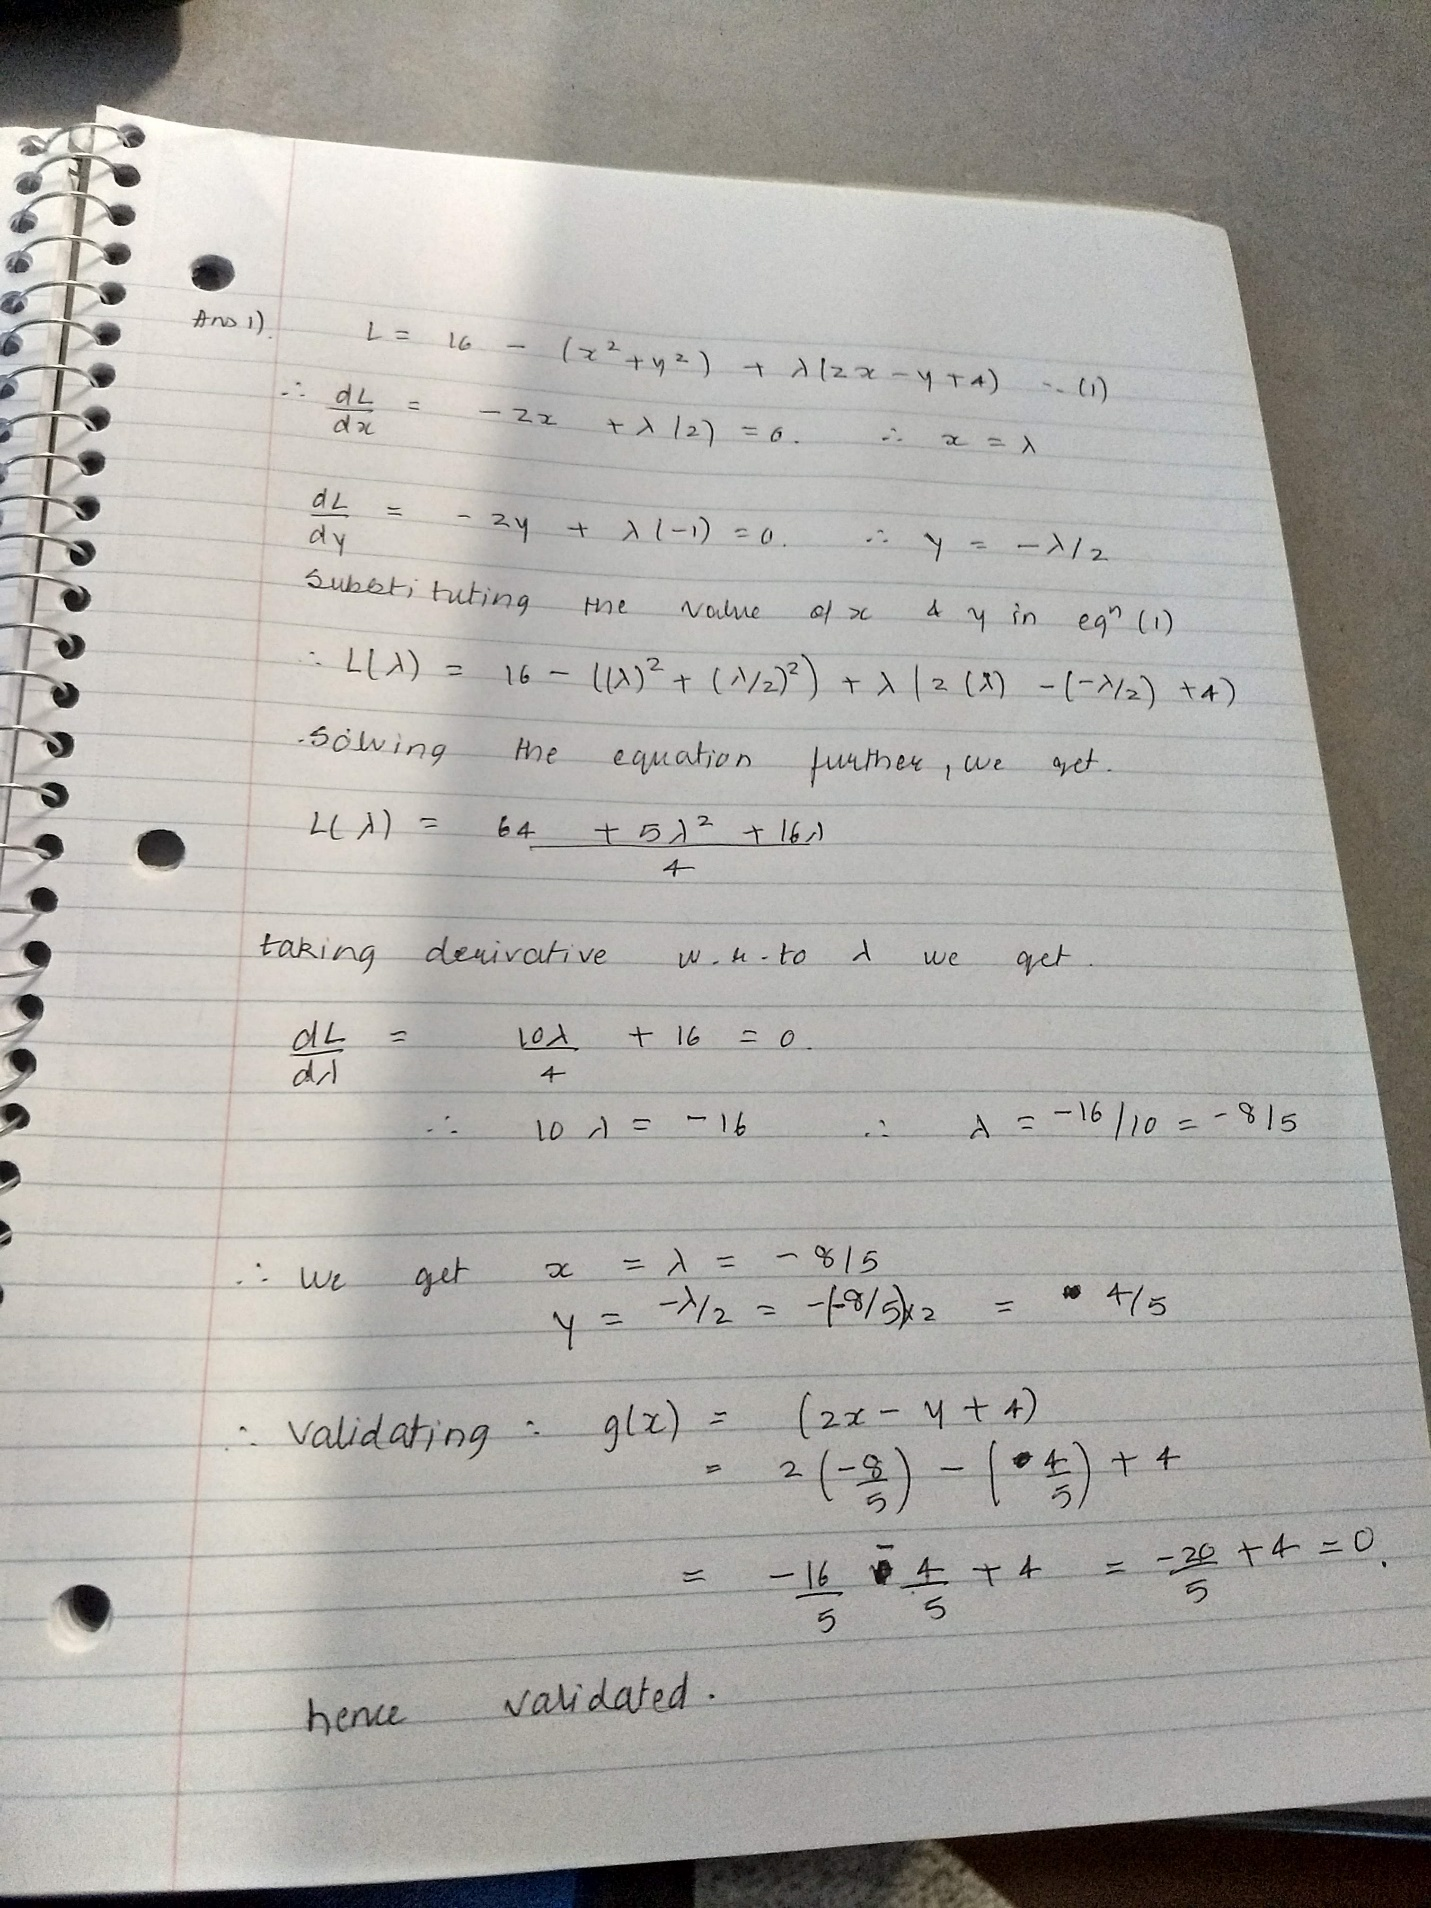 Ans 1). L = 16 - (x² + y²) + λ(2x - y + 4) ... (1)
∴ dL/dx = - 2x + λ(2) = 0. ∴ x = λ
dL/dy = - 2y + λ(-1) = 0. ∴ y = -λ/2
Substituting the value of x & y in eqⁿ (1)
∴ L(λ) = 16 - ((λ)² + (λ/2)²) + λ(2(λ) - (-λ/2) + 4)
Solving the equation further, we get.
L(λ) = 64 + 5λ² + 16λ / 4
taking derivative w.r.to λ we get.
dL/dλ = 10λ/4 + 16 = 0.
∴ 10λ = -16 ∴ λ = -16/10 = -8/5
∴ We get x = λ = -8/5
y = -λ/2 = -(-8/5)x2 = 4/5
∴ Validating : g(x) = (2x - y + 4)
= 2(-8/5) - (4/5) + 4
= -16/5 - 4/5 + 4 = -20/5 + 4 = 0.
hence validated.